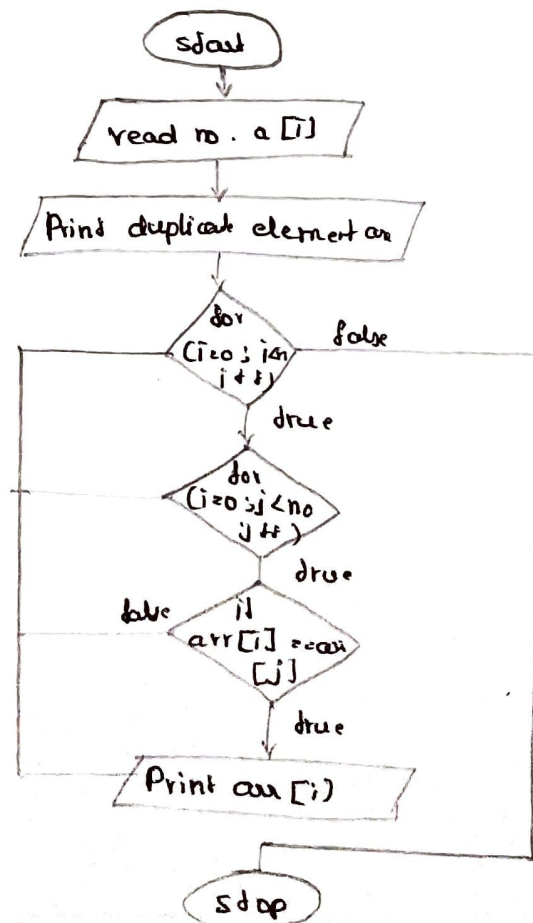 start
read no. a[i]
Print duplicate element arr
for
(i=0; i<n
i++)
false
true
for
(i=0; j<no
j++)
true
false
if
arr[i] ==arr
[j]
true
Print arr[i]
stop